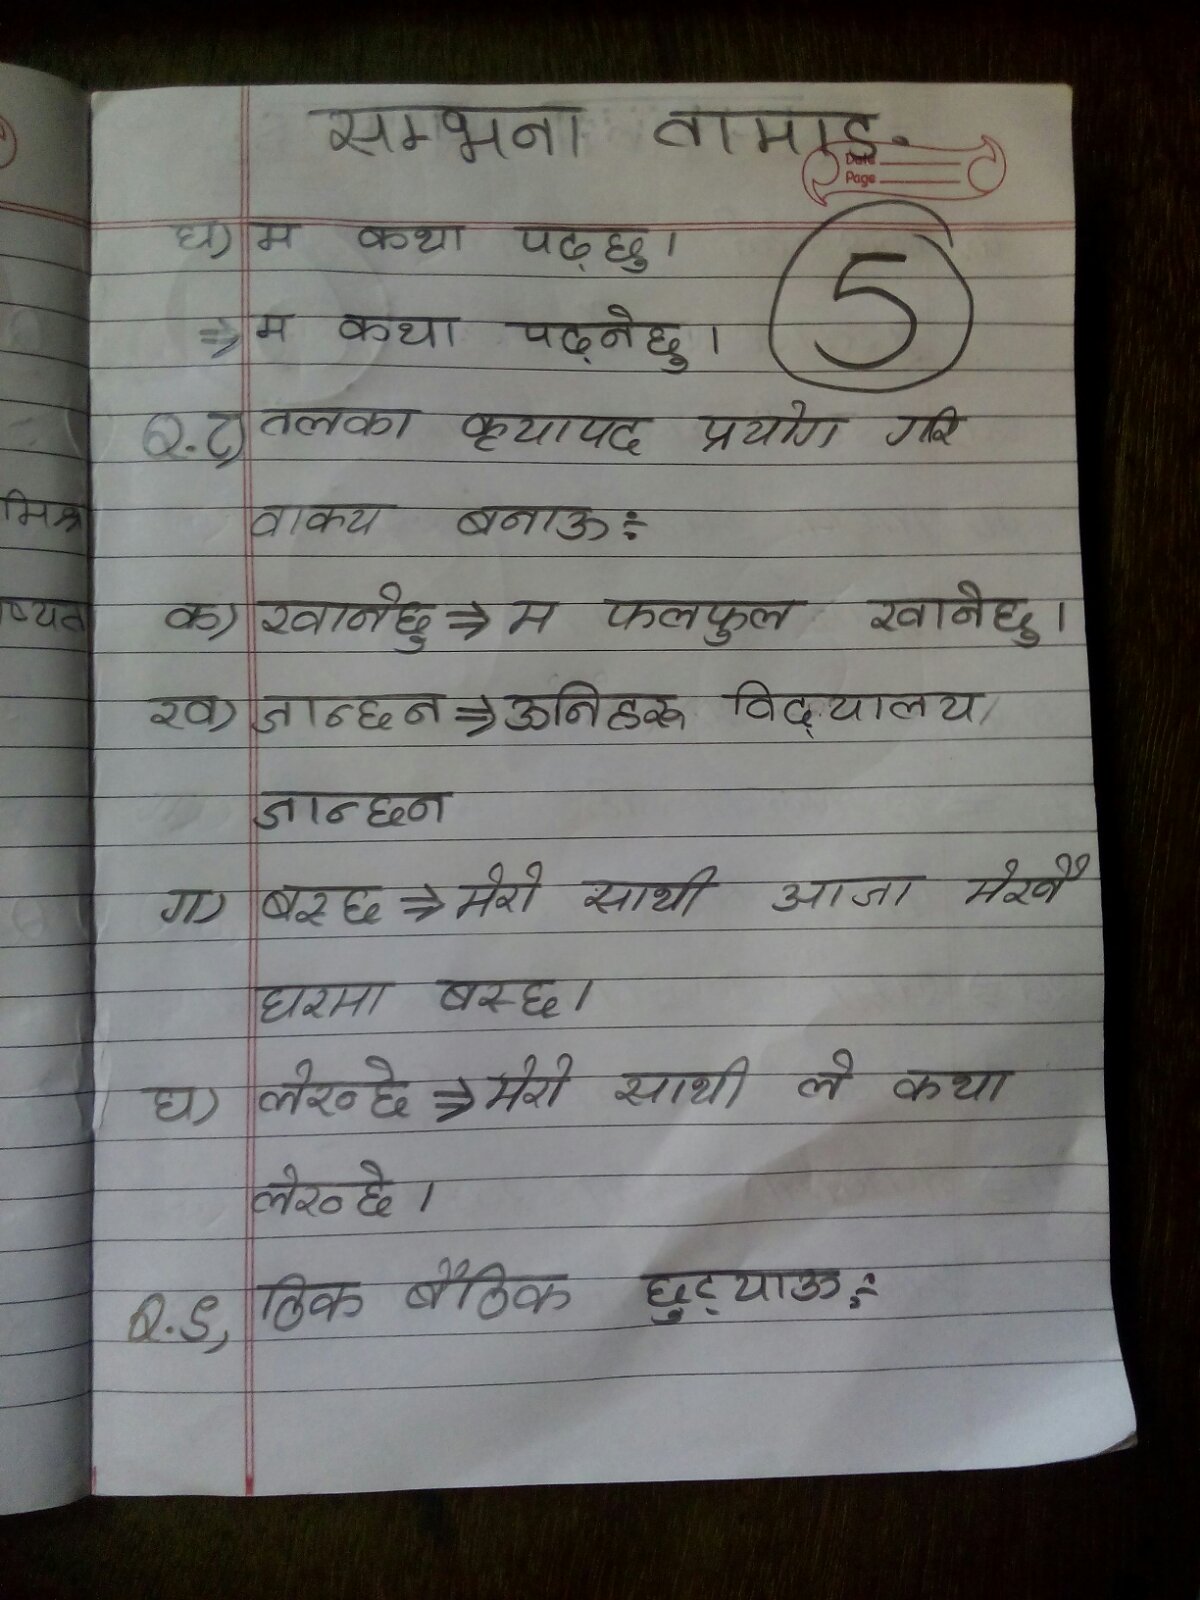 सम्भना तामाङ
Date
Page
5
घ) म कथा पढ्छु।
⇒ म कथा पढ्नेछु।
Q.८) तलका कृयापद प्रयोग गरि
वाक्य बनाऊ÷
क) खानेछु ⇒ म फलफुल खानेछु।
ख) जान्छन ⇒ ऊनिहरू विद्यालय
जान्छन
ग) बस्छ ⇒ मेरो साथी आजा मेरै
घरमा बस्छ।
घ) लेख्छे ⇒ मेरो साथी ले कथा
लेख्छे।
Q.९, ठिक बैठिक छुट्याऊ÷
मिश्र
ष्यत